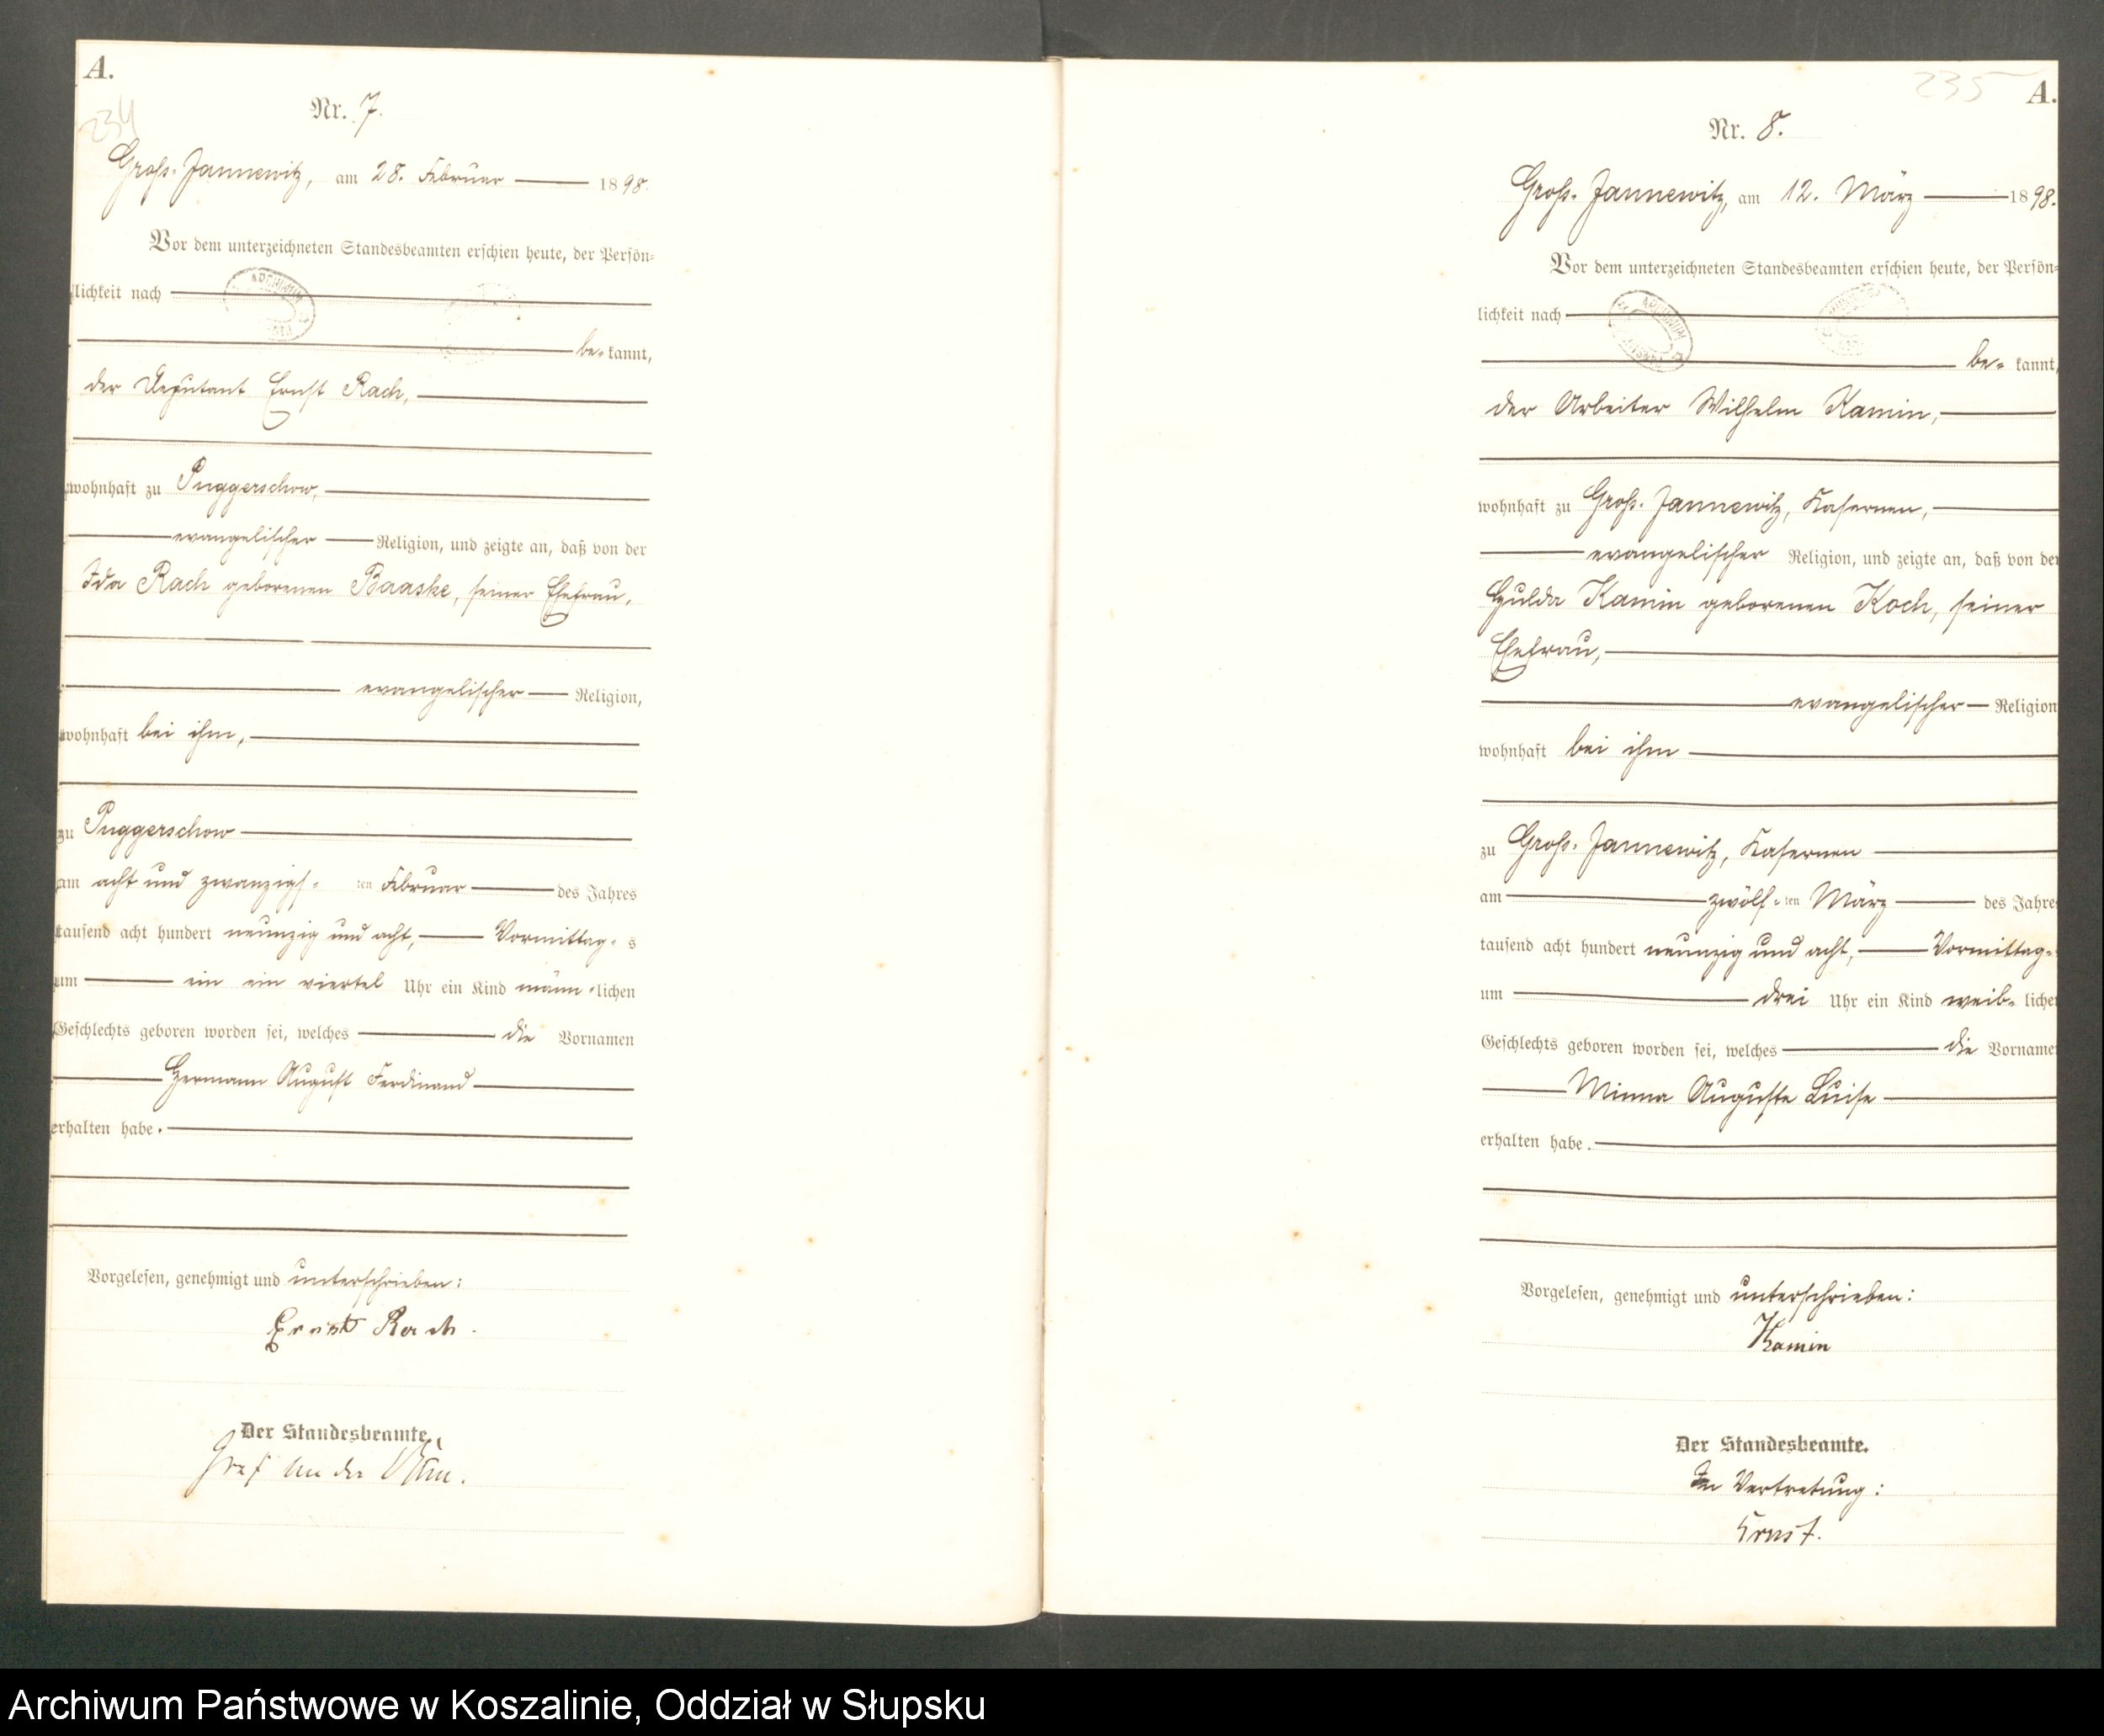 A.
234
Nr. 7.
Groß-Jannewitz, am 28. Februar 1898.
Vor dem unterzeichneten Standesbeamten erschien heute, der Persön-
lichkeit nach
be-kannt,
der Deputant Ernst Rach,
wohnhaft zu Puggerschow,
evangelischer Religion, und zeigte an, daß von der
Ida Rach geborenen Baaske, seiner Ehefrau,
evangelischer Religion,
wohnhaft bei ihm,
zu Puggerschow
am acht und zwanzigs-ten Februar des Jahres
tausend acht hundert neunzig und acht, Vormittag-s
um ein ein viertel Uhr ein Kind männ-lichen
Geschlechts geboren worden sei, welches die Vornamen
Hermann August Ferdinand
erhalten habe.
Vorgelesen, genehmigt und unterschrieben:
Ernst Rach.
Der Standesbeamte.
Graf von der
235
A.
Nr. 8.
Groß-Jannewitz, am 12. März 1898.
Vor dem unterzeichneten Standesbeamten erschien heute, der Persön-
lichkeit nach
be-kannt,
der Arbeiter Wilhelm Kamin,
wohnhaft zu Groß-Jannewitz, Kasernen,
evangelischer Religion, und zeigte an, daß von der
Hulda Kamin geborenen Koch, seiner
Ehefrau,
evangelischer Religion
wohnhaft bei ihm
zu Groß-Jannewitz, Kasernen
am zwölf-ten März des Jahre
tausend acht hundert neunzig und acht, Vormittag-
um drei Uhr ein Kind weib-liche
Geschlechts geboren worden sei, welches die Vorname
Minna Auguste Luise
erhalten habe.
Vorgelesen, genehmigt und unterschrieben:
Kamin
Der Standesbeamte.
In Vertretung:
Ernst.
Archiwum Państwowe w Koszalinie, Oddział w Słupsku